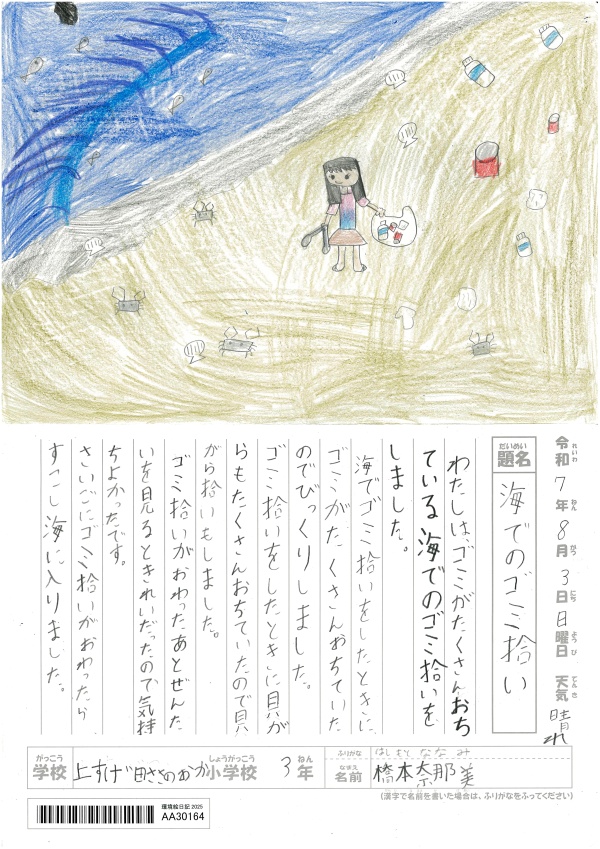 令和7年8月3日日曜日 天気晴れ
れいわ ねん がつ にち ようび てんき
だいめい
題名 海でのゴミ拾い
わたしは、ゴミがたくさんおち
ている海でのゴミ拾いを
しました。
海でゴミ拾いをしたときに
ゴミがたくさんおちていた
のでびっくりしました。
ゴミ拾いをしたときに貝が
らもたくさんおちていたので貝
がら拾いもしました。
ゴミ拾いがおわったあとぜんた
いを見るときれいだったので気持
ちよかったです。
さいごにゴミ拾いがおわったら
すこし海に入りました。
がっこう しょうがっこう ねん
学校 上すげ田ささのおか小学校 3年
ふりがな はしもと ななみ
なまえ
名前 橋本奈那美
(漢字で名前を書いた場合は、ふりがなをふってください)
環境絵日記 2025
AA30164